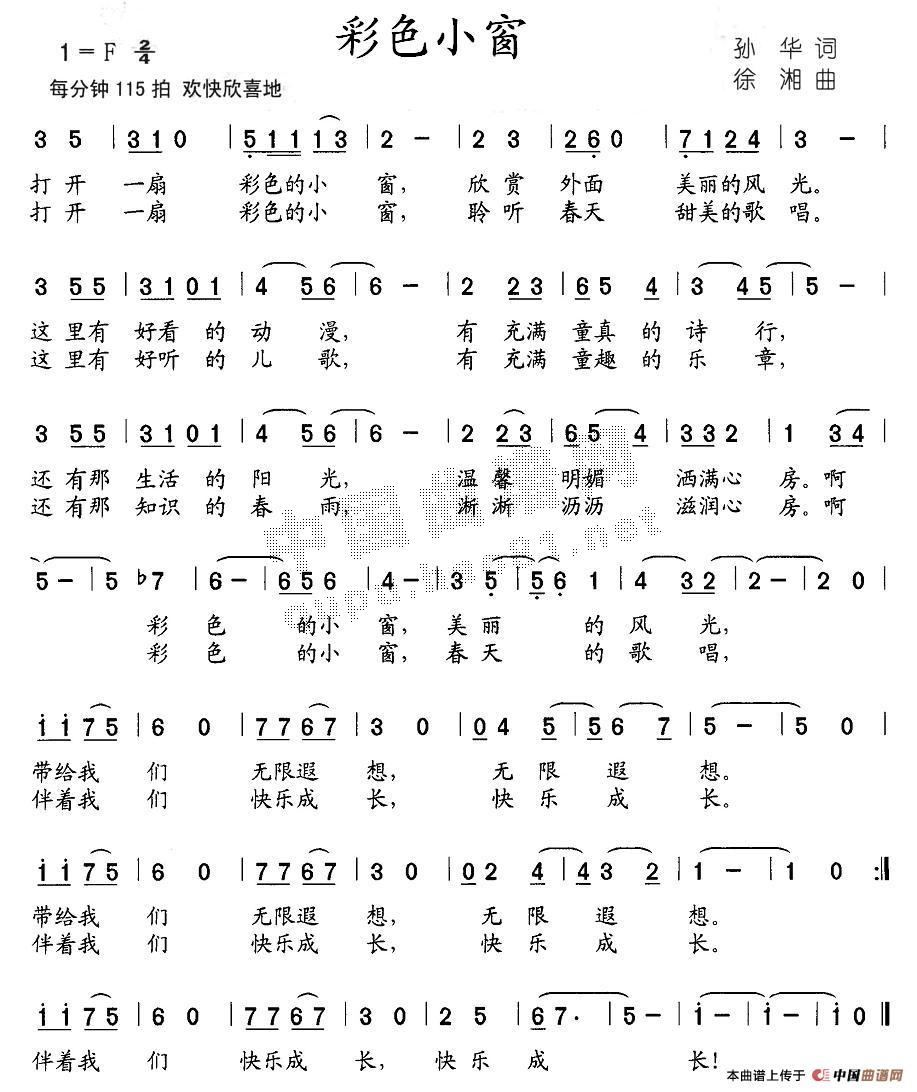 彩色小窗
1＝F 2/4
孙 华 词
徐 湘 曲
每分钟 115 拍 欢快欣喜地
3 5 | 3 1 0 | 5 1 1 1 3 | 2 － | 2 3 | 2 6 0 | 7 1 2 4 | 3 － |
打 开 一扇 彩色的小 窗， 欣 赏 外面 美丽的风 光。
打 开 一扇 彩色的小 窗， 聆 听 春天 甜美的歌 唱。
3 5 5 | 3 1 0 1 | 4 5 6 | 6 － | 2 2 3 | 6 5 4 | 3 4 5 | 5 － |
这 里有 好看 的 动 漫， 有 充满 童真 的 诗 行，
这 里有 好听 的 儿 歌， 有 充满 童趣 的 乐 章，
3 5 5 | 3 1 0 1 | 4 5 6 | 6 － | 2 2 3 | 6 5 4 | 3 3 2 | 1 3 4 |
还 有那 生活 的 阳 光， 温 馨 明媚 洒满心 房。啊
还 有那 知识 的 春 雨， 淅 淅 沥沥 滋润心 房。啊
5 － | 5 ♭7 | 6 － | 6 5 6 | 4 － | 3 5 | 5 6 1 | 4 3 2 | 2 － | 2 0 |
彩 色 的小 窗，美 丽 的 风 光，
彩 色 的小 窗，春 天 的 歌 唱，
i i 7 5 | 6 0 | 7 7 6 7 | 3 0 | 0 4 5 | 5 6 7 | 5 － | 5 0 |
带给我 们 无限遐 想， 无 限 遐 想。
伴着我 们 快乐成 长， 快 乐 成 长。
i i 7 5 | 6 0 | 7 7 6 7 | 3 0 | 0 2 4 | 4 3 2 | 1 － | 1 0 :‖
带给我 们 无限遐 想， 无 限 遐 想。
伴着我 们 快乐成 长， 快 乐 成 长。
i i 7 5 | 6 0 | 7 7 6 7 | 3 0 | 2 5 | 6 7· | 5 － | i － | i － | i 0 ‖
伴着我 们 快乐成 长， 快 乐 成 长！
本曲谱上传于 中国曲谱网